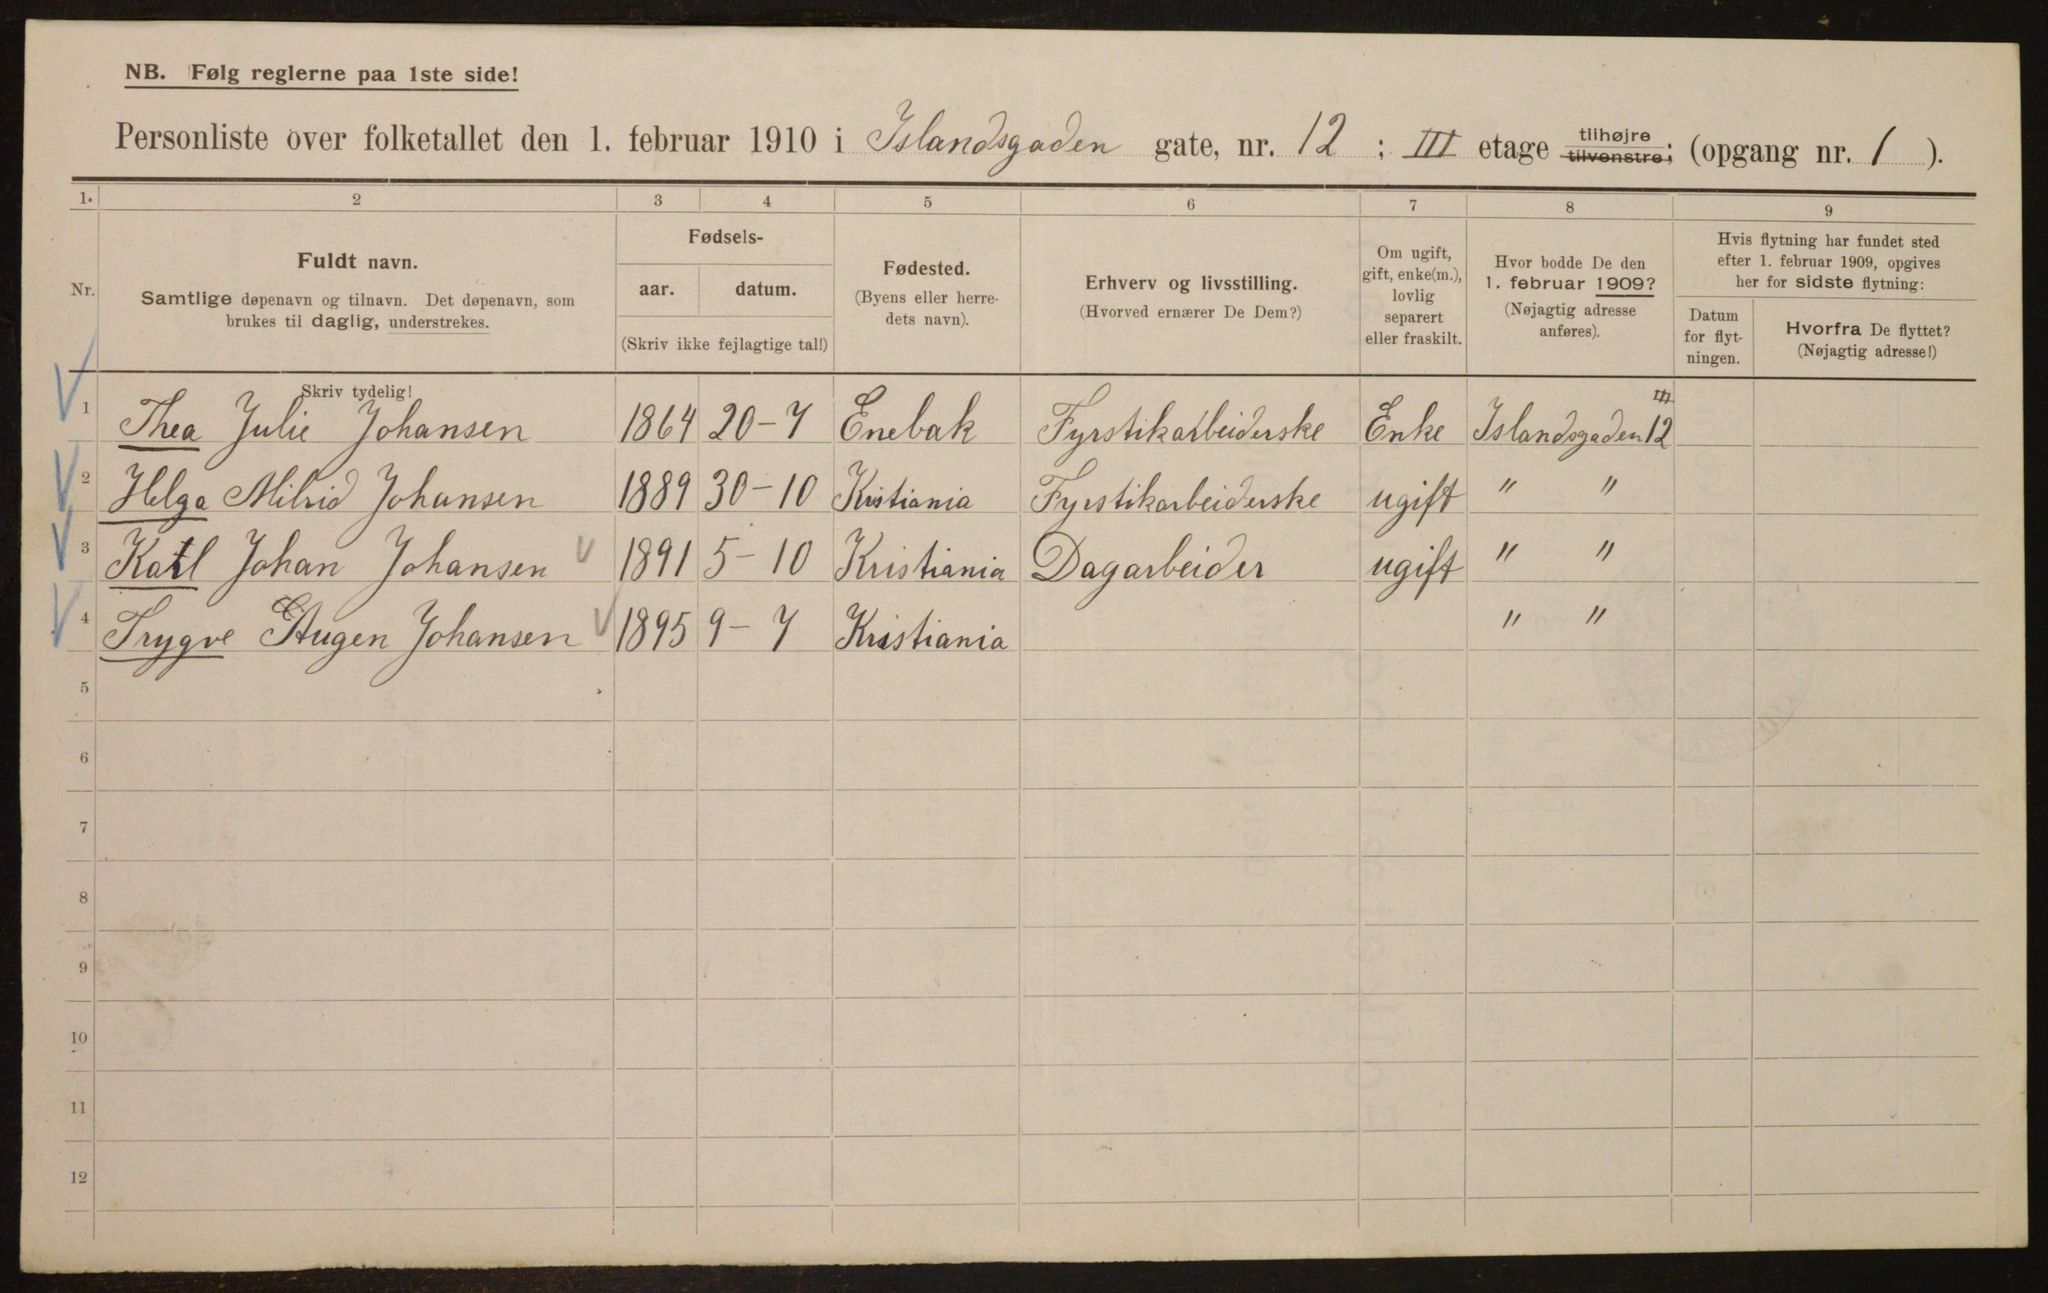 NB. Følg reglerne paa 1ste side!
Personliste over folketallet den 1. februar 1910 i Islandsgaden gate, nr. 12 ; III etage tilhøjre tilvenstre; (opgang nr. 1 ).
1. 2 3 4 5 6 7 8 9
Nr.
Fuldt navn.
Samtlige døpenavn og tilnavn. Det døpenavn, som
brukes til daglig, understrekes.
Fødsels-
aar. datum.
(Skriv ikke fejlagtige tal!)
Fødested.
(Byens eller herre-
dets navn).
Erhverv og livsstilling.
(Hvorved ernærer De Dem?)
Om ugift,
gift, enke(m.),
lovlig
separert
eller fraskilt.
Hvor bodde De den
1. februar 1909?
(Nøjagtig adresse
anføres).
Hvis flytning har fundet sted
efter 1. februar 1909, opgives
her for sidste flytning:
Datum
for flyt-
ningen.
Hvorfra De flyttet?
(Nøjagtig adresse!)
Skriv tydelig!
1 Thea Julie Johansen 1864 20-7 Enebak Fyrstikarbeiderske Enke Islandsgaden 12 III
2 Helga Milrid Johansen 1889 30-10 Kristiania Fyrstikarbeiderske ugift " "
3 Karl Johan Johansen 1891 5-10 Kristiania Dagarbeider ugift " "
4 Trygve Augen Johansen 1895 9-7 Kristiania " "
5
6
7
8
9
10
11
12